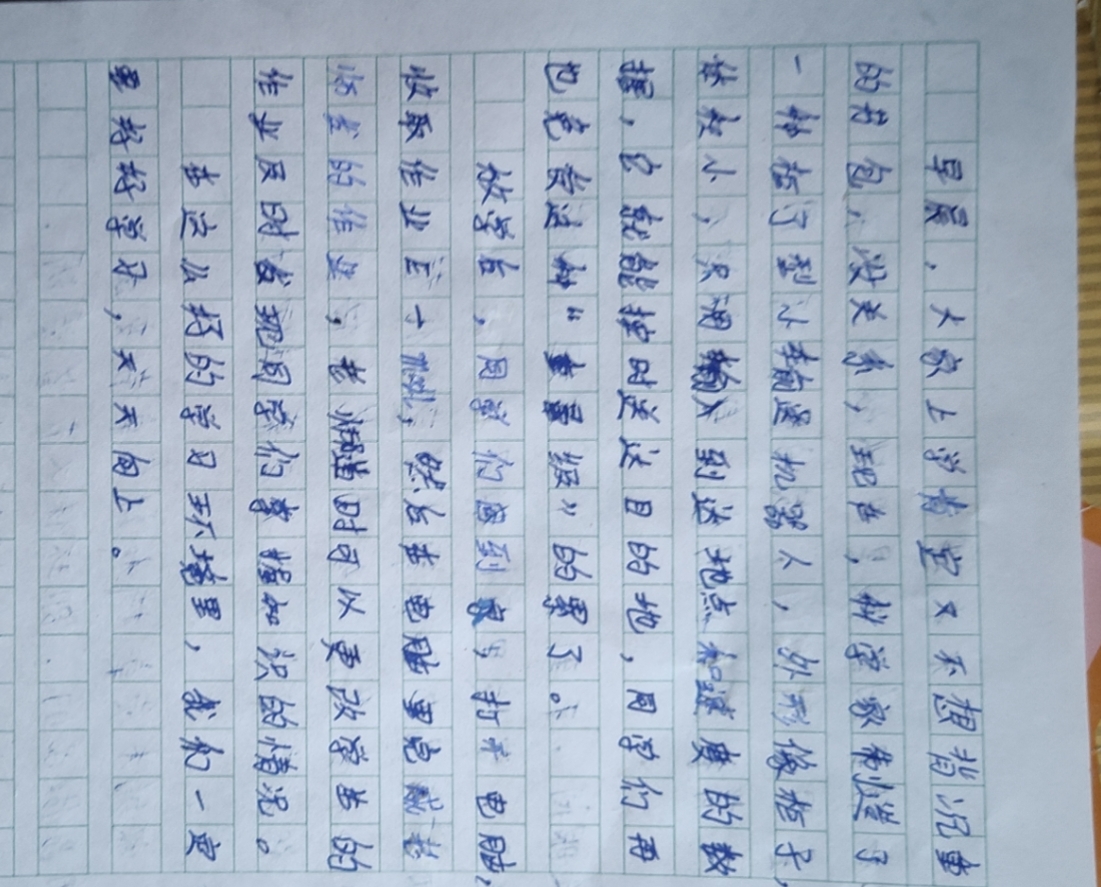 早晨，大家上学肯定又不想背沉重
的书包，没关系，现在，科学家制造了
一种型小输送机器人，外形像子，
体较小，只输入到达地点和速度的数
据，它就能按时送达目的地，同学们再
也免受这种“重量级”的累了。
放学后，同学们回到家，打开电脑，
收取作业，然后在电脑里完成老
师发的作业，老师随时可以更改学生的
作业及时发现同学们掌握知识的情况。
在这么好的学习环境里，我们一定
要好好学习，天天向上。